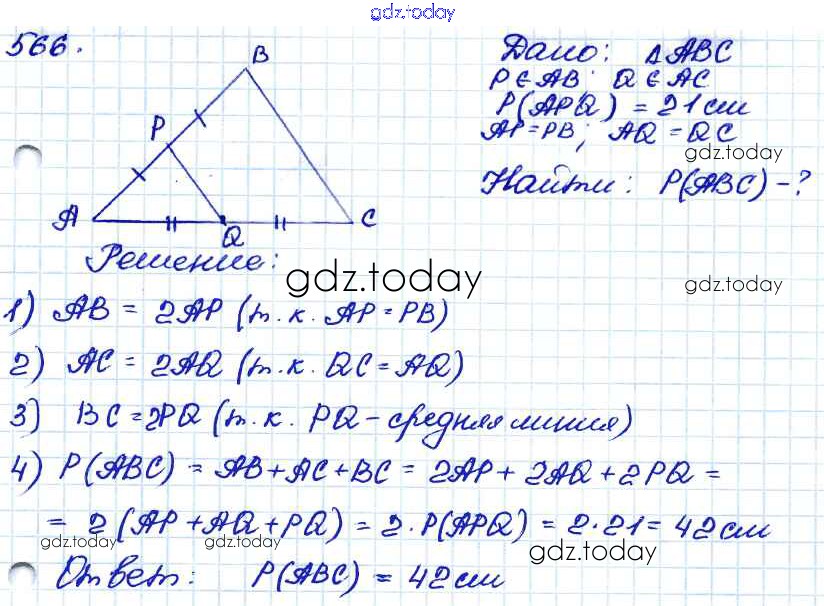 gdz.today
566.
B
P
A
Q
C
Дано: △ABC
P∈AB Q∈AC
P(APQ) = 21см
AP=PB; AQ=QC
gdz.today
Найти: P(ABC) - ?
Решение:
gdz.today
gdz.today
1) AB = 2AP (т.к. AP=PB)
2) AC = 2AQ (т.к. QC=AQ)
3) BC=2PQ (т.к. PQ-средняя линия)
4) P(ABC) = AB+AC+BC = 2AP+2AQ+2PQ =
= 2(AP+AQ+PQ) = 2·P(APQ) = 2·21= 42см
gdz.today gdz.today gdz.today
Ответ: P(ABC) = 42см